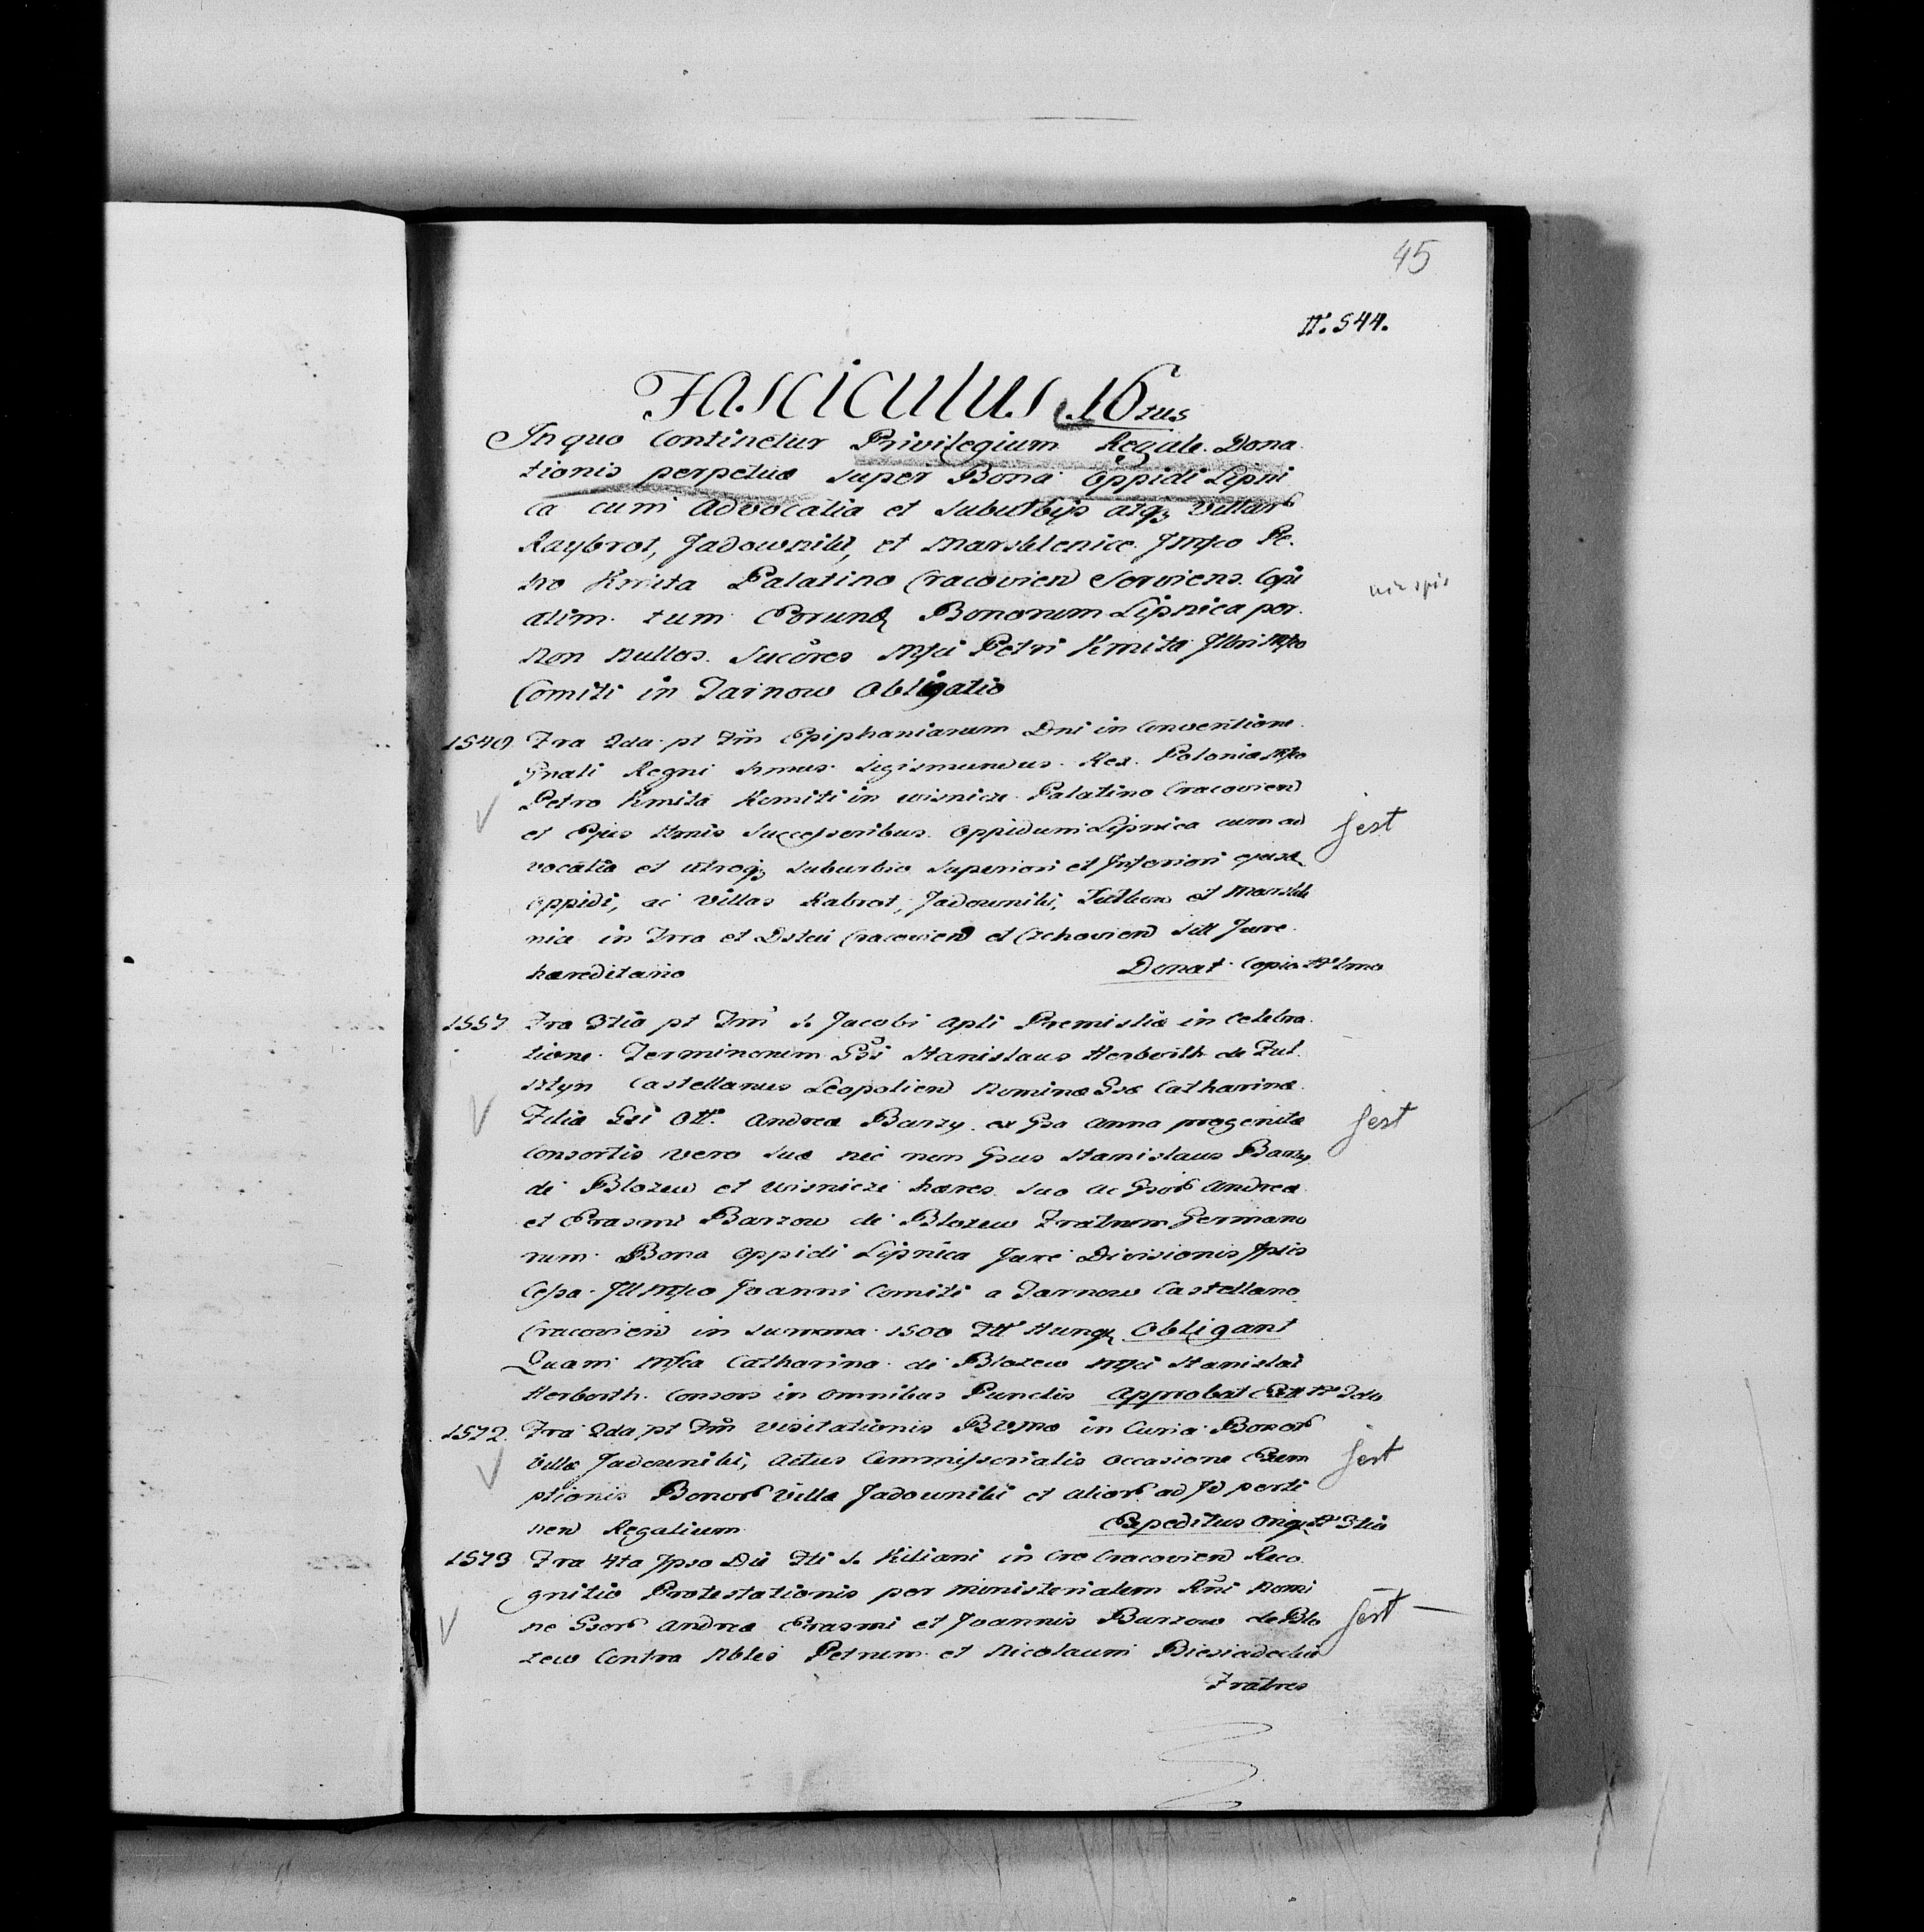 45
N. 544.
Fasciculus 16tus
In quo Continetur Privilegium Regale Dona
tionis perpetuæ super Bona Oppidi Lipni
ca cum Advocatia et suburbijs atq3 Villarb
Raybrot, Jadowniki, et Marsklenice Jmpco Pe.
tro Kmita Palatino Cracovien Serviens Copi
atim. tum Eorund Bonorum Lipnica per.
Non nullos Sucôres Mfci Petri Kmita Illmpco
Comiti in Tarnow Obligatio
nie spis
1540 Fra 2da pt Fm Epiphaniarum Dni in Conventione
Gnali Regni Srmus Sigismundus Rex Poloniæ Mpco
Petro Kmita Komiti in Wisnicze Palatino Cracovien
et Ejus Ltmis Successoribus Oppidum Lipnica cum ad
vocatia et utroq3 suburbio Superiori et Inferiori ejusd
Oppidi, ac Villas Rabrot, Jadowniki, et Marskle
nice in Trra et Dstcu Cracovien et Czchovien Jure
hæreditario Donat Copia N 1mo
jest
1557 Fra 3tia pt Fm S. Jacobi Apli Premisliæ in Celebra
tione Terminorum Gsi Stanislaus Herborth de Ful
sztyn Castellanus Leopolien Nomine Gsæ Catharinæ
Filiæ Gsi Andreæ Barzy ex Gsa Anna progenitæ
Consortis vero suæ nec non Gsus Stanislaus Barzy
de Blozew et Wisnicze hæres suo ac Gsorb Andreæ
et Erasmi Barzow de Blozew Fratrum Germano
rum Bona Oppidi Lipnica Jure Divisionis Ipsis
Cessa Illmpco Joanni Comiti a Tarnow Castellano
Cracovien in Summa 1500 Hung Obligant
Quam Mfca Catharina de Blozew Mfci Stanislai
Herborth Consors in omnibus Punctis Approbat N 2do
jest
1572. Fra 2da pt Fm Visitationis BVMæ in Curia Bonorb
Villæ Jadowniki, Actus Commissorialis occasione Exem
ptionis Bonorb Villæ Jadowniki et Aliorb ad Id perti
nen Regalium Expeditus Orig N 3tio
jest
1573 Fra 4ta Ipso Die Fti S. Kiliani in Cro Cracovien Reco
gnitio Protestationis per Ministerialem Rni Nomi
ne Gsorb Andreæ Erasmi et Joannis Barzow de Blo
zew Contra Nbles Petrum et Nicolaum Biesiadecki
Fratres
jest